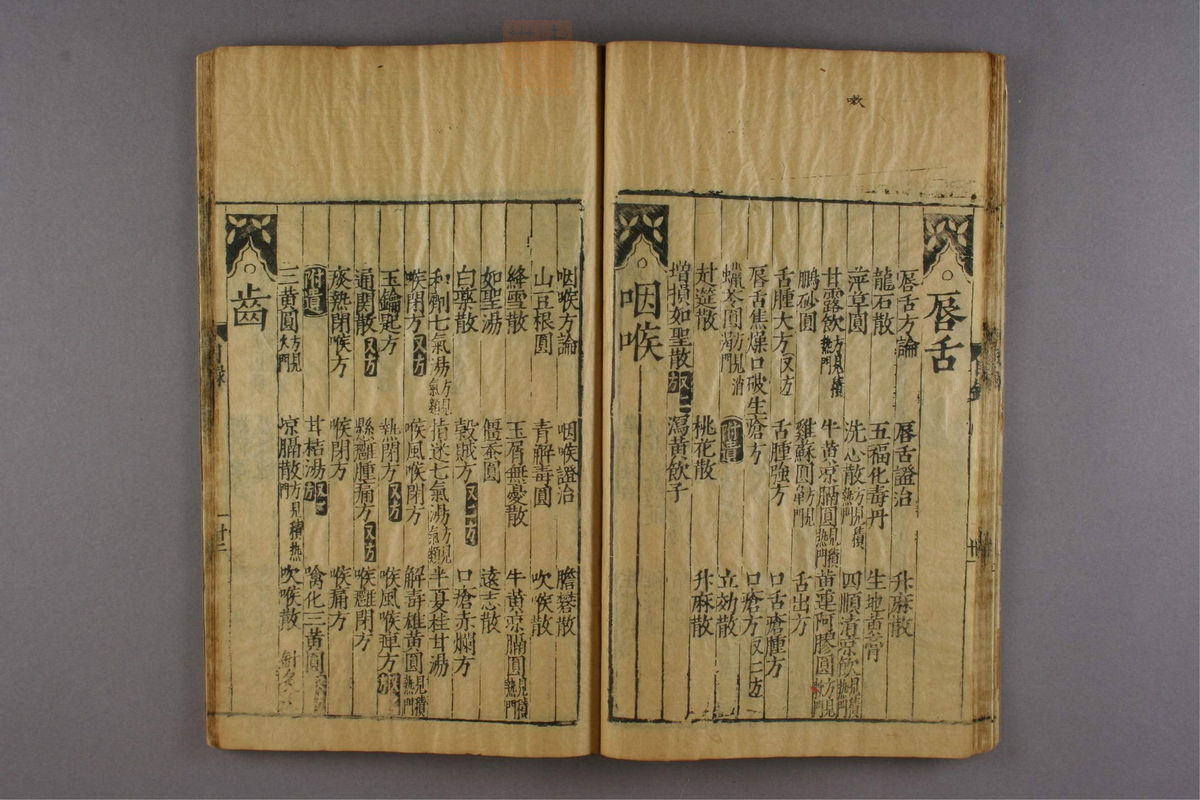 嗽
唇舌
唇舌方論 唇舌證治 升麻散
龍石散 五福化毒丹 生地黃膏
萍草圓 洗心散方見積熱門 四順清凉飲方見積熱門
甘露飲方見積熱門 牛黃凉膈圓方見積熱門 黃連阿膠圓方見
鵬砂圓 雞蘇圓方見 舌出方
舌腫大方又方 舌腫強方 口舌瘡腫方
唇舌焦燥口破生瘡方 口瘡方又二方
蠟苓圓方見消渴門 附遺 立効散
桃花散 升麻散
增損如聖散又二方 瀉黃飲子
咽喉
咽喉方論 咽喉證治 膽礬散
山豆根圓 青解毒圓 吹喉散
絳雪散 玉屑無憂散 牛黃凉膈圓方見積熱門
如聖湯 僵蚕圓 遠志散
白礬散 穀賊方又二方 口瘡赤爛方
和劑七氣湯方見氣類 指迷七氣湯方見氣類 半夏桂甘湯
喉閉方又方 喉風喉閉方 解毒雄黃圓方見積熱門
玉鑰匙方 熱閉方又方 喉風喉痺方又方
通関散又方 懸雍腫痛方又方 喉雍閉方
痰熱閉喉方 喉閉方 喉痛方
附遺 甘桔湯又一方 噙化三黃圓
三黃圓方見火門 凉膈散方見積熱門 吹喉散
齒
目録
一 廿二